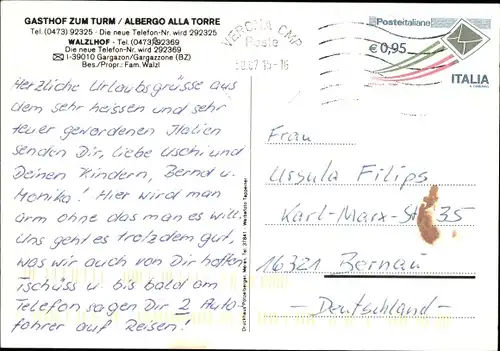 GASTHOF ZUM TURM / ALBERGO ALLA TORRE
Tel. (0473) 92325 · Die neue Telefon-Nr. wird 292325
WALZLHOF · Tel. (0473) 292369
Die neue Telefon-Nr. wird 292369
I-39010 Gargazon/Gargazzone (BZ)
Bes./Propr.: Fam. Walzl
VERONA CMP
Poste
30.07.15-16
Posteitaliane
€ 0,95
ITALIA
Herzliche Urlaubsgrüsse aus
dem sehr heissen und sehr
teuer gewordenen Italien
senden Dir, liebe Uschi und
Deinen Kindern, Bernd u.
Monika! Hier wird man
arm ohne das man es will.
Uns geht es trotzdem gut,
was wir auch von Dir hoffen.
Tschüss u. bis bald am
Telefon sagen Dir 2 Auto-
fahrer auf Reisen!
Frau
Ursula Filips
Karl-Marx-St 35
16321 Bernau
- Deutschland -